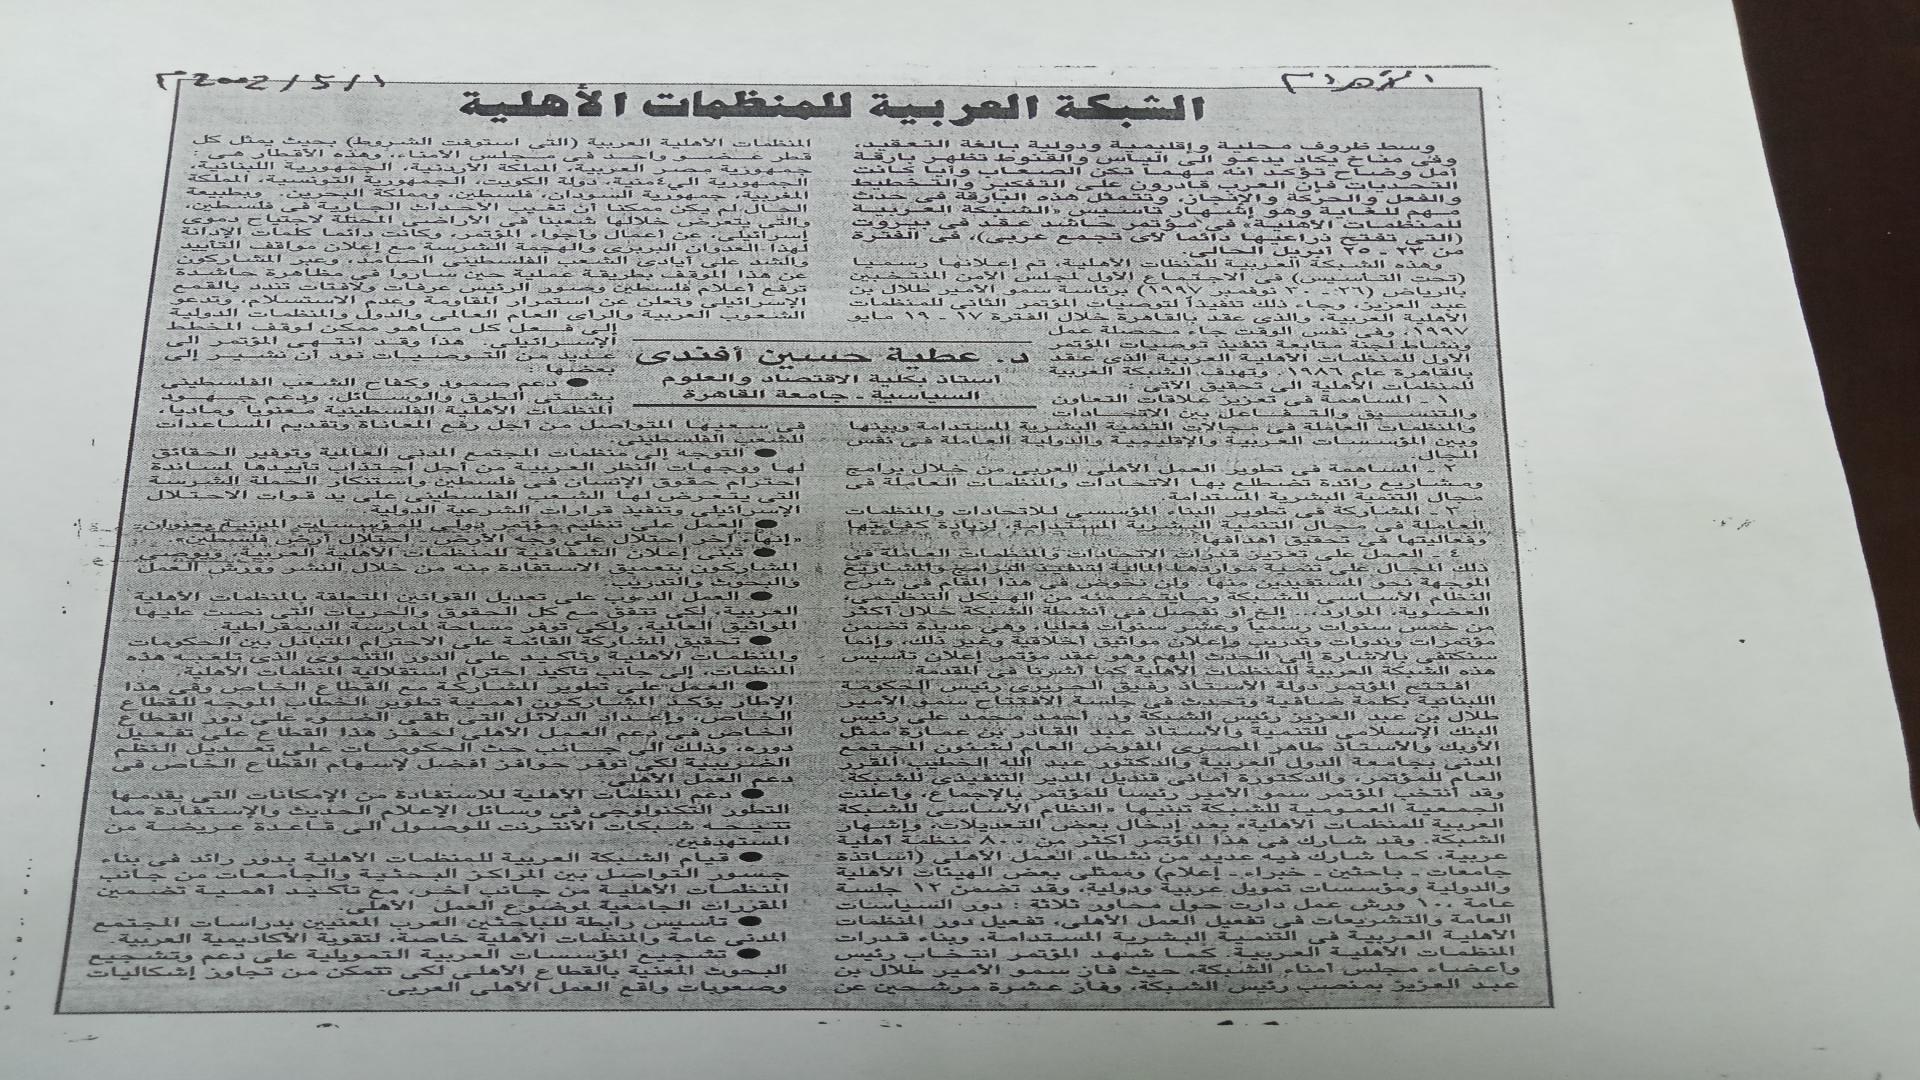 الأهرام
٢٠٠٢/٥/١م
الشبكة العربية للمنظمات الأهلية
وسط ظروف محلية وإقليمية ودولية بالغة التعقيد،
وفى مناخ يكاد يدعو الى اليأس والقنوط تظهر بارقة
أمل وضاح تؤكد أنه مهما تكن الصعاب وأيا كانت
التحديات فإن العرب قادرون على التفكير والتخطيط
والفعل والحركة والإنجاز. وتتمثل هذه البارقة فى حدث
مهم للغاية وهو إشهار تأسيس «الشبكة العربية
للمنظمات الأهلية» فى مؤتمر حاشد عقد فى بيروت
(التي تفتح ذراعيها دائما لأى تجمع عربى)، فى الفترة
من ٢٣ - ٢٥ أبريل الحالى.
وهذه الشبكة العربية للمنظات الأهلية، تم إعلانها رسميا
(تحت التأسيس) فى الاجتماع الأول لمجلس الأمن المنتخبين
بالرياض (٢٦ - ٣٠ نوفمبر ١٩٩٧) برئاسة سمو الأمير طلال بن
عبد العزيز، وجاء ذلك تنفيذا لتوصيات المؤتمر الثانى للمنظمات
الأهلية العربية، والذى عقد بالقاهرة خلال الفترة ١٧ - ١٩ مايو
١٩٩٧، وفى نفس الوقت جاء محصلة عمل
ونشاط لجنة متابعة تنفيذ توصيات المؤتمر
الأول للمنظمات الأهلية العربية الذى عقد
بالقاهرة عام ١٩٨٦، وتهدف الشبكة العربية
للمنظمات الأهلية الى تحقيق الآتى :
١ - المساهمة فى تعزيز علاقات التعاون
والتنسيق والتفاعل بين الاتحادات
والمنظمات العاملة فى مجالات التنمية البشرية المستدامة وبينها
وبين المؤسسات العربية والإقليمية والدولية العاملة فى نفس
المجال.
٢ - المساهمة فى تطوير العمل الأهلى العربى من خلال برامج
ومشاريع رائدة تضطلع بها الاتحادات والمنظمات العاملة فى
مجال التنمية البشرية المستدامة.
٣ - المشاركة فى تطوير البناء المؤسسي للاتحادات والمنظمات
العاملة فى مجال التنمية البشرية المستدامة، لزيادة كفاءتها
وفعاليتها فى تحقيق أهدافها.
٤ - العمل على تعزيز قدرات الاتحادات والمنظمات العاملة فى
ذلك المجال على تنمية مواردها المالية لتنفيذ البرامج والمشاريع
الموجهة نحو المستفيدين منها. ولن نخوض فى هذا المقام فى شرح
النظام الأساسى للشبكة ومايتضمنه من الهيكل التنظيمى،
العضوية، الموارد،.. إلخ أو نفصل فى أنشطة الشبكة خلال أكثر
من خمس سنوات رسميا وعشر سنوات فعليا، وهى عديدة تضمن
مؤتمرات وندوات وتدريب وإعلان مواثيق أخلاقية وغير ذلك، وإنما
سنكتفى بالإشارة إلى الحدث المهم وهو عقد مؤتمر إعلان تأسيس
هذه الشبكة العربية للمنظمات الأهلية كما أشرنا فى المقدمة.
افتتح المؤتمر دولة الأستاذ رفيق الحريرى رئيس الحكومة
اللبنانية بكلمة ضافية وتحدث فى جلسة الافتتاح سمو الأمير
طلال بن عبد العزيز رئيس الشبكة ود. أحمد محمد على رئيس
البنك الإسلامى للتنمية والأستاذ عبد القادر بن عمارة ممثل
الأوبك والأستاذ طاهر المصرى المفوض العام لشئون المجتمع
المدنى بجامعة الدول العربية والدكتور عبد الله الخطيب المقرر
العام للمؤتمر، والدكتورة أمانى قنديل المدير التنفيذى للشبكة.
وقد أنتخب المؤتمر سمو الأمير رئيسا للمؤتمر بالإجماع، وأعلنت
الجمعية العمومية للشبكة تبنيها «النظام الأساسى للشبكة
العربية للمنظمات الأهلية» بعد إدخال بعض التعديلات، وإشهار
الشبكة. وقد شارك فى هذا المؤتمر أكثر من ٨٠٠ منظمة أهلية
عربية، كما شارك فيه عديد من نشطاء العمل الأهلى (أساتذة
جامعات - باحثين - خبراء - إعلام) وممثلى بعض الهيئات الأهلية
والدولية ومؤسسات تمويل عربية ودولية، وقد تضمن ١٢ جلسة
عامة ١٠٠ ورش عمل دارت حول محاور ثلاثة : دور السياسات
العامة والتشريعات فى تفعيل العمل الأهلى، تفعيل دور المنظمات
الأهلية العربية فى التنمية البشرية المستدامة، وبناء قدرات
المنظمات الأهلية العربية. كما شهد المؤتمر انتخاب رئيس
وأعضاء مجلس أمناء الشبكة، حيث فاز سمو الأمير طلال بن
عبد العزيز بمنصب رئيس الشبكة، وفاز عشرة مرشحين عن
د. عطية حسين أفندى
أستاذ بكلية الاقتصاد والعلوم
السياسية - جامعة القاهرة
المنظمات الأهلية العربية (التي استوفت الشروط) بحيث يمثل كل
قطر عضو واحد فى مجلس الأمناء، وهذه الأقطار هى :
جمهورية مصر العربية، المملكة الأردنية، الجمهورية اللبنانية،
الجمهورية اليمنية، دولة الكويت، الجمهورية التونسية، المملكة
المغربية، جمهورية السودان، فلسطين، ومملكة البحرين. وبطبيعة
الحال لم يكن ممكنا أن تغيب الأحداث الجارية فى فلسطين،
والتى يتعرض خلالها شعبنا فى الأراضى المحتلة لاجتياح دموى
إسرائيلى، عن أعمال وأجواء المؤتمر. وكانت دائما كلمات الإدانة
لهذا العدوان البربرى والهجمة الشرسة مع إعلان مواقف التأييد
والشد على أيادى الشعب الفلسطينى الصامد، وعبر المشاركون
عن هذا الموقف بطريقة عملية حين ساروا فى مظاهرة حاشدة
ترفع أعلام فلسطين وصور الرئيس عرفات ولافتات تندد بالقمع
الإسرائيلى وتعلن عن استمرار المقاومة وعدم الاستسلام، وتدعو
الشعوب العربية والرأى العام العالمى والدول والمنظمات الدولية
إلى فعل كل ماهو ممكن لوقف المخطط
الإسرائيلى. هذا وقد انتهى المؤتمر الى
عديد من التوصيات نود أن نشير إلى
بعضها :
● دعم صمود وكفاح الشعب الفلسطينى
بشتى الطرق والوسائل، ودعم جهود
المنظمات الأهلية الفلسطينية معنويا وماديا،
فى سعيها المتواصل من أجل رفع المعاناة وتقديم المساعدات
للشعب الفلسطينى.
● التوجه إلى منظمات المجتمع المدنى العالمية وتوفير الحقائق
لها ووجهات النظر العربية من أجل اجتذاب تأييدها لمساندة
احترام حقوق الإنسان فى فلسطين واستنكار الحملة الشرسة
التى يتعرض لها الشعب الفلسطينى على يد قوات الاحتلال
الإسرائيلى وتنفيذ قرارات الشرعية الدولية.
● العمل على تنظيم مؤتمر دولى للمؤسسات المدنية بعنوان:
«إنهاء آخر احتلال على وجه الأرض - احتلال أرض فلسطين».
● تبنى إعلان الشفافية للمنظمات الأهلية العربية. ويوصى
المشاركون بتعميق الاستفادة منه من خلال النشر وورش العمل
والبحوث والتدريب.
● العمل الدءوب على تعديل القوانين المتعلقة بالمنظمات الأهلية
العربية، لكى تتفق مع كل الحقوق والحريات التى نصت عليها
المواثيق العالمية، ولكى توفر مساحة لممارسة الديمقراطية.
● تحقيق المشاركة القائمة على الاحترام المتبادل بين الحكومات
والمنظمات الأهلية وتأكيد على الدور التنموى الذى تلعبه هذه
المنظمات، إلى جانب تأكيد احترام استقلالية المنظمات الأهلية.
● العمل على تطوير المشاركة مع القطاع الخاص وفى هذا
الإطار يؤكد المشاركون أهمية تطوير الخطاب الموجه للقطاع
الخاص، وإعداد الدلائل التى تلقى الضوء على دور القطاع
الخاص فى دعم العمل الأهلى لحفز هذا القطاع على تفعيل
دوره، وذلك إلى جانب حث الحكومات على تعديل النظم
الضريبية لكى توفر حوافز أفضل لإسهام القطاع الخاص فى
دعم العمل الأهلى.
● دعم المنظمات الأهلية للاستفادة من الإمكانات التى يقدمها
التطور التكنولوجى فى وسائل الإعلام الحديث والاستفادة مما
تتيحه شبكات الأنترنت للوصول الى قاعدة عريضة من
المستهدفين.
● قيام الشبكة العربية للمنظمات الأهلية بدور رائد فى بناء
جسور التواصل بين المراكز البحثية والجامعات من جانب
المنظمات الأهلية من جانب آخر، مع تأكيد أهمية تضمين
المقررات الجامعية لموضوع العمل الأهلى.
● تأسيس رابطة للباحثين العرب المعنيين بدراسات المجتمع
المدنى عامة والمنظمات الأهلية خاصة، لتقوية الأكاديمية العربية.
● تشجيع المؤسسات العربية التمويلية على دعم وتشجيع
البحوث المعنية بالقطاع الأهلى لكى تتمكن من تجاوز إشكاليات
وصعوبات واقع العمل الأهلى العربى.